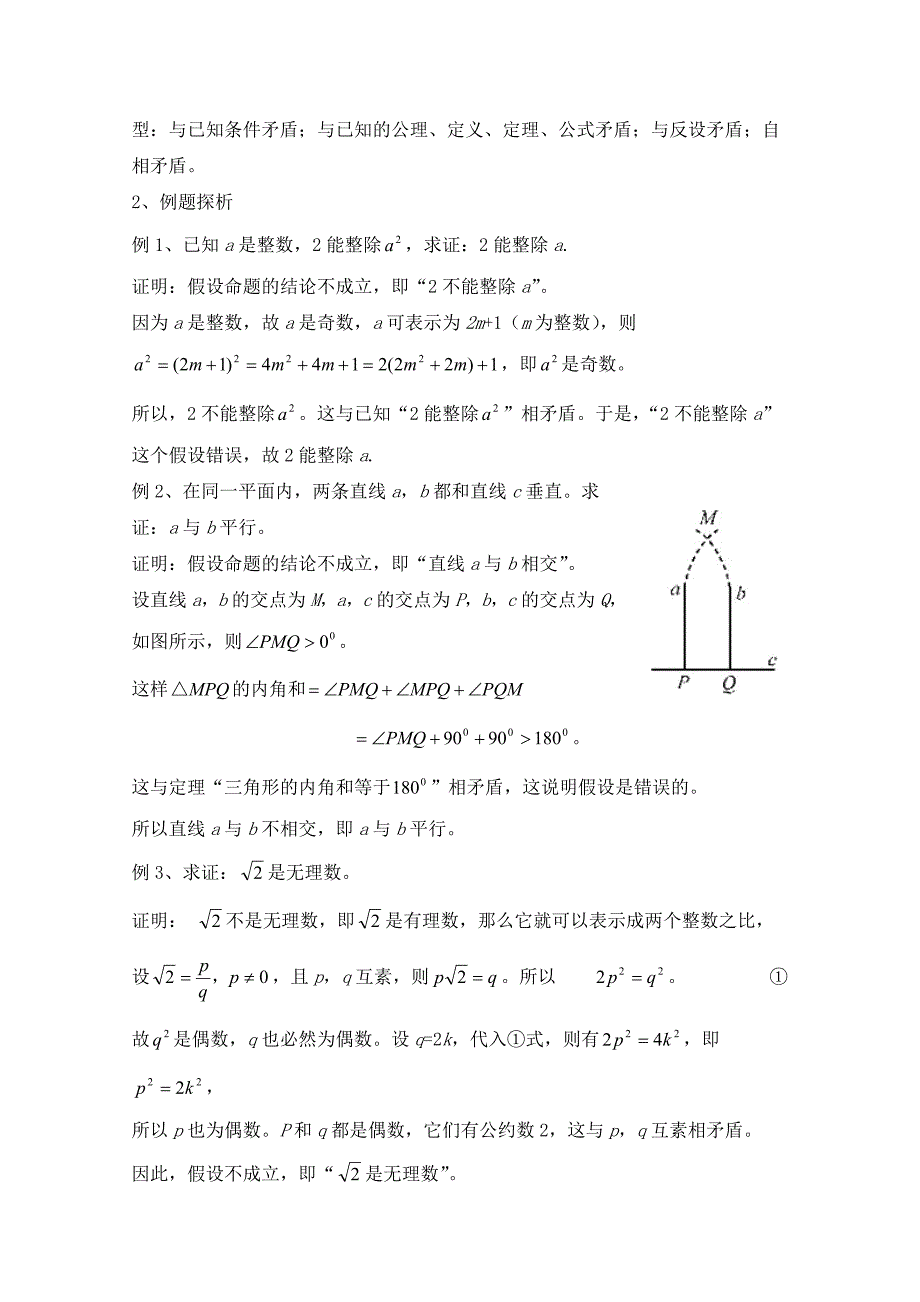 型：与已知条件矛盾；与已知的公理、定义、定理、公式矛盾；与反设矛盾；自
相矛盾。
2、例题探析
例1、已知a是整数，2能整除a²，求证：2能整除a.
证明：假设命题的结论不成立，即“2不能整除a”。
因为a是整数，故a是奇数，a可表示为2m+1（m为整数），则
a²=(2m+1)²=4m²+4m+1=2(2m²+2m)+1，即a²是奇数。
所以，2不能整除a²。这与已知“2能整除a²”相矛盾。于是，“2不能整除a”
这个假设错误，故2能整除a.
例2、在同一平面内，两条直线a，b都和直线c垂直。求
证：a与b平行。
证明：假设命题的结论不成立，即“直线a与b相交”。
设直线a，b的交点为M，a，c的交点为P，b，c的交点为Q，
如图所示，则∠PMQ>0⁰。
这样△MPQ的内角和=∠PMQ+∠MPQ+∠PQM
=∠PMQ+90⁰+90⁰>180⁰。
M
a b
c
P Q
这与定理“三角形的内角和等于180⁰”相矛盾，这说明假设是错误的。
所以直线a与b不相交，即a与b平行。
例3、求证：√2是无理数。
证明： √2不是无理数，即√2是有理数，那么它就可以表示成两个整数之比，
设√2=p/q，p≠0，且p，q互素，则p√2=q。所以 2p²=q²。 ①
故q²是偶数，q也必然为偶数。设q=2k，代入①式，则有2p²=4k²，即
p²=2k²，
所以p也为偶数。P和q都是偶数，它们有公约数2，这与p，q互素相矛盾。
因此，假设不成立，即“√2是无理数”。